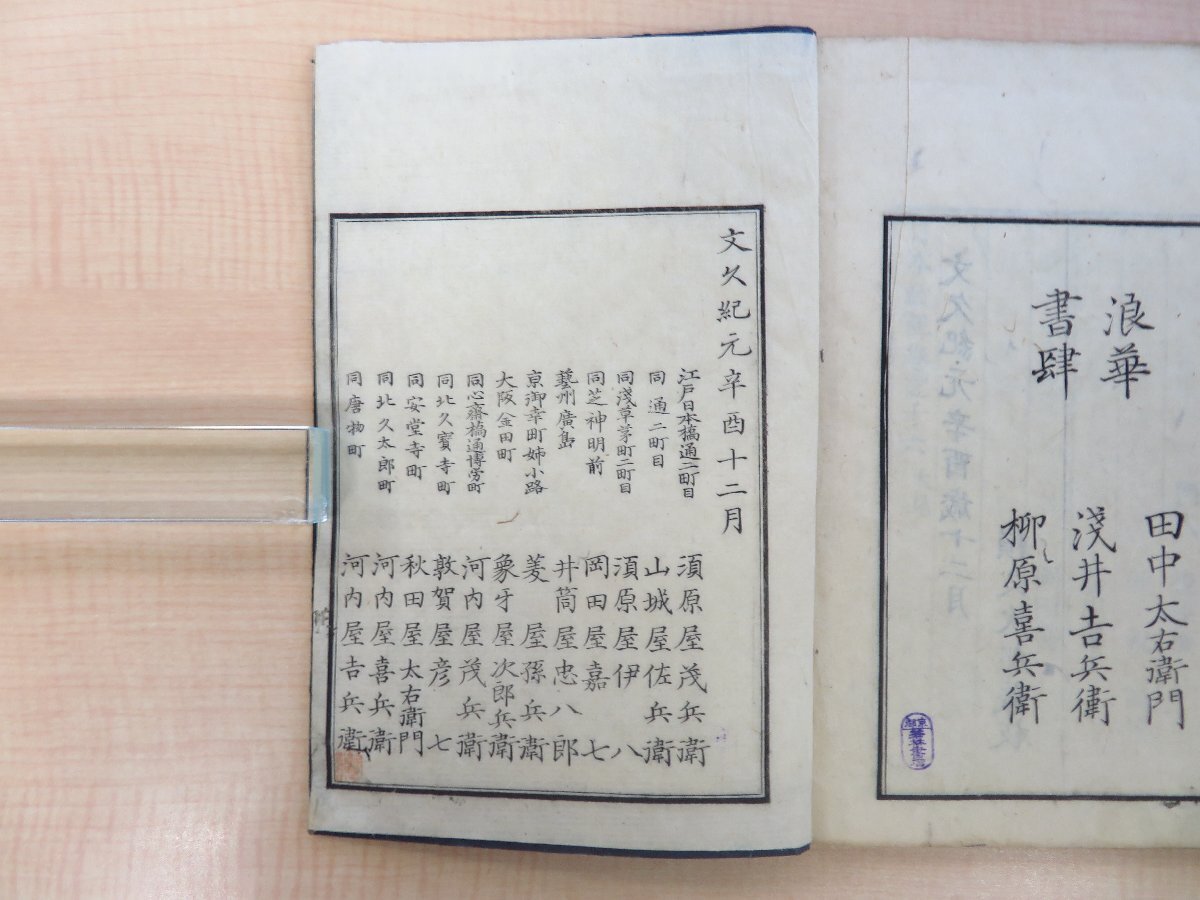 浪華
書肆
田中太右衛門
淺井吉兵衛
柳原喜兵衛
文久紀元辛酉十二月
江戸日本橋通一町目 須原屋茂兵衛
同通二町目 山城屋佐兵衛
同淺草茅町二町目 須原屋伊八
同芝神明前 岡田屋嘉七
藝州廣島 井筒屋忠八郎
京御幸町姉小路 菱屋孫兵衛
大阪金田町 象牙屋次郎兵衛
同心齋橋通博労町 河内屋茂兵衛
同北久寶寺町 敦賀屋彦七
同安堂寺町 秋田屋太右衛門
同北久太郎町 河内屋喜兵衛
同唐物町 河内屋吉兵衛